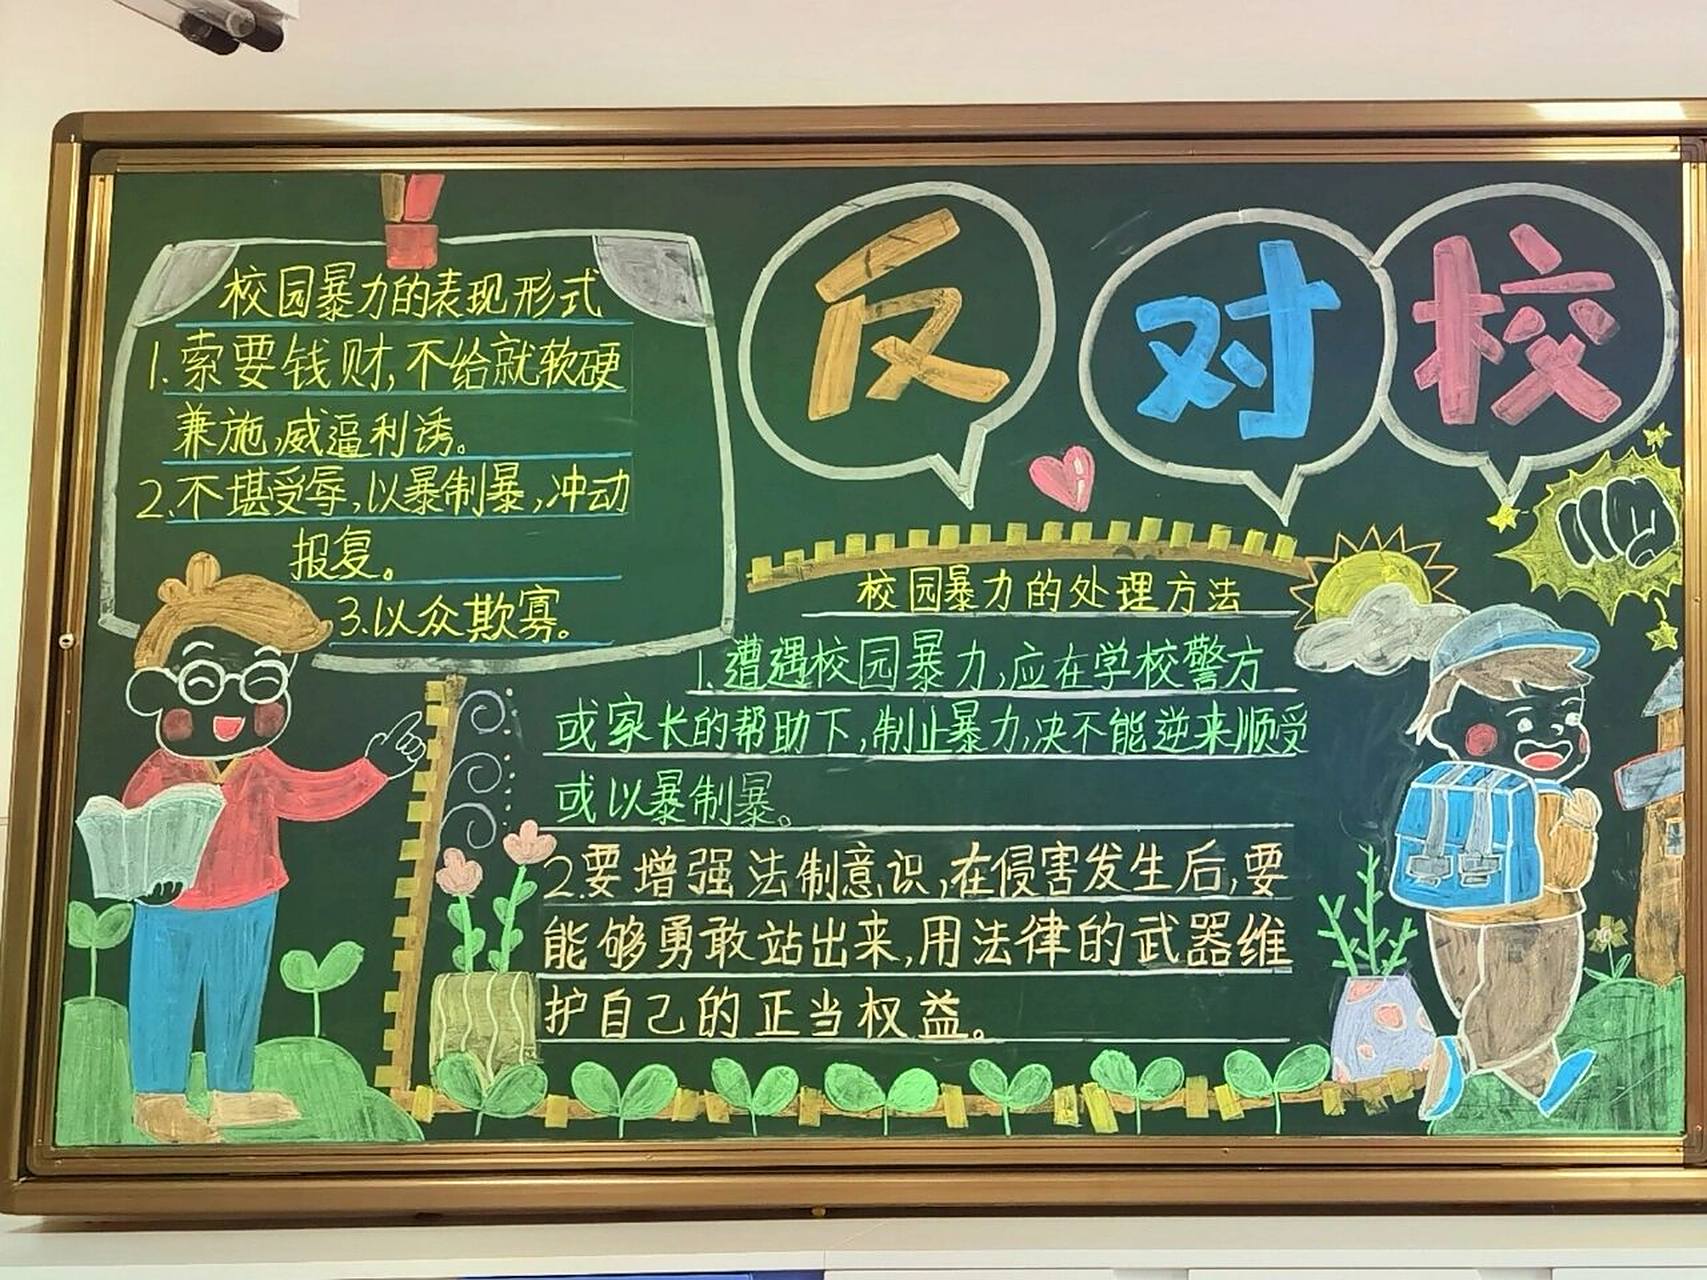 反对校
校园暴力的表现形式
1.索要钱财,不给就软硬
兼施,威逼利诱。
2.不堪受辱,以暴制暴,冲动
报复。
3.以众欺寡。
校园暴力的处理方法
1.遭遇校园暴力,应在学校警方
或家长的帮助下,制止暴力,决不能逆来顺受
或以暴制暴。
2.要增强法制意识,在侵害发生后,要
能够勇敢站出来,用法律的武器维
护自己的正当权益。